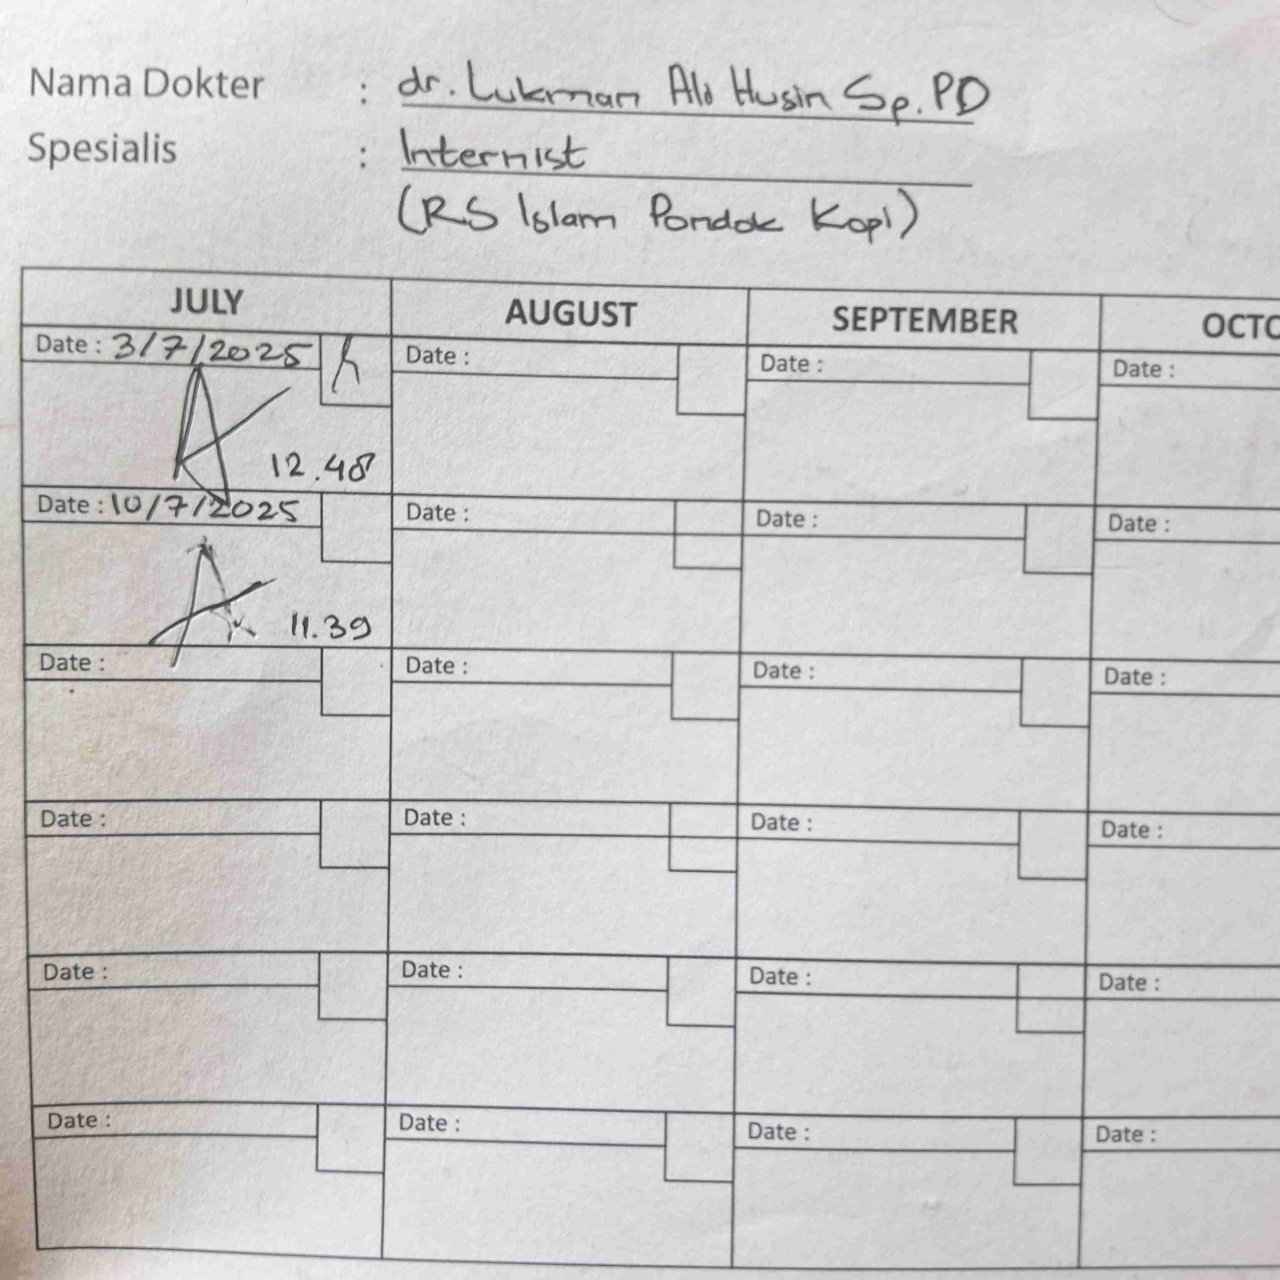 Nama Dokter : dr. Lukman Ali Husin Sp. PD
Spesialis : Internist
(RS Islam Pondok Kopi)
JULY AUGUST SEPTEMBER OCTO
Date : 3/7/2025 Date : Date : Date :
12.48
Date : 10/7/2025 Date : Date : Date :
11.39
Date : Date : Date : Date :
Date : Date : Date : Date :
Date : Date : Date : Date :
Date : Date : Date : Date :